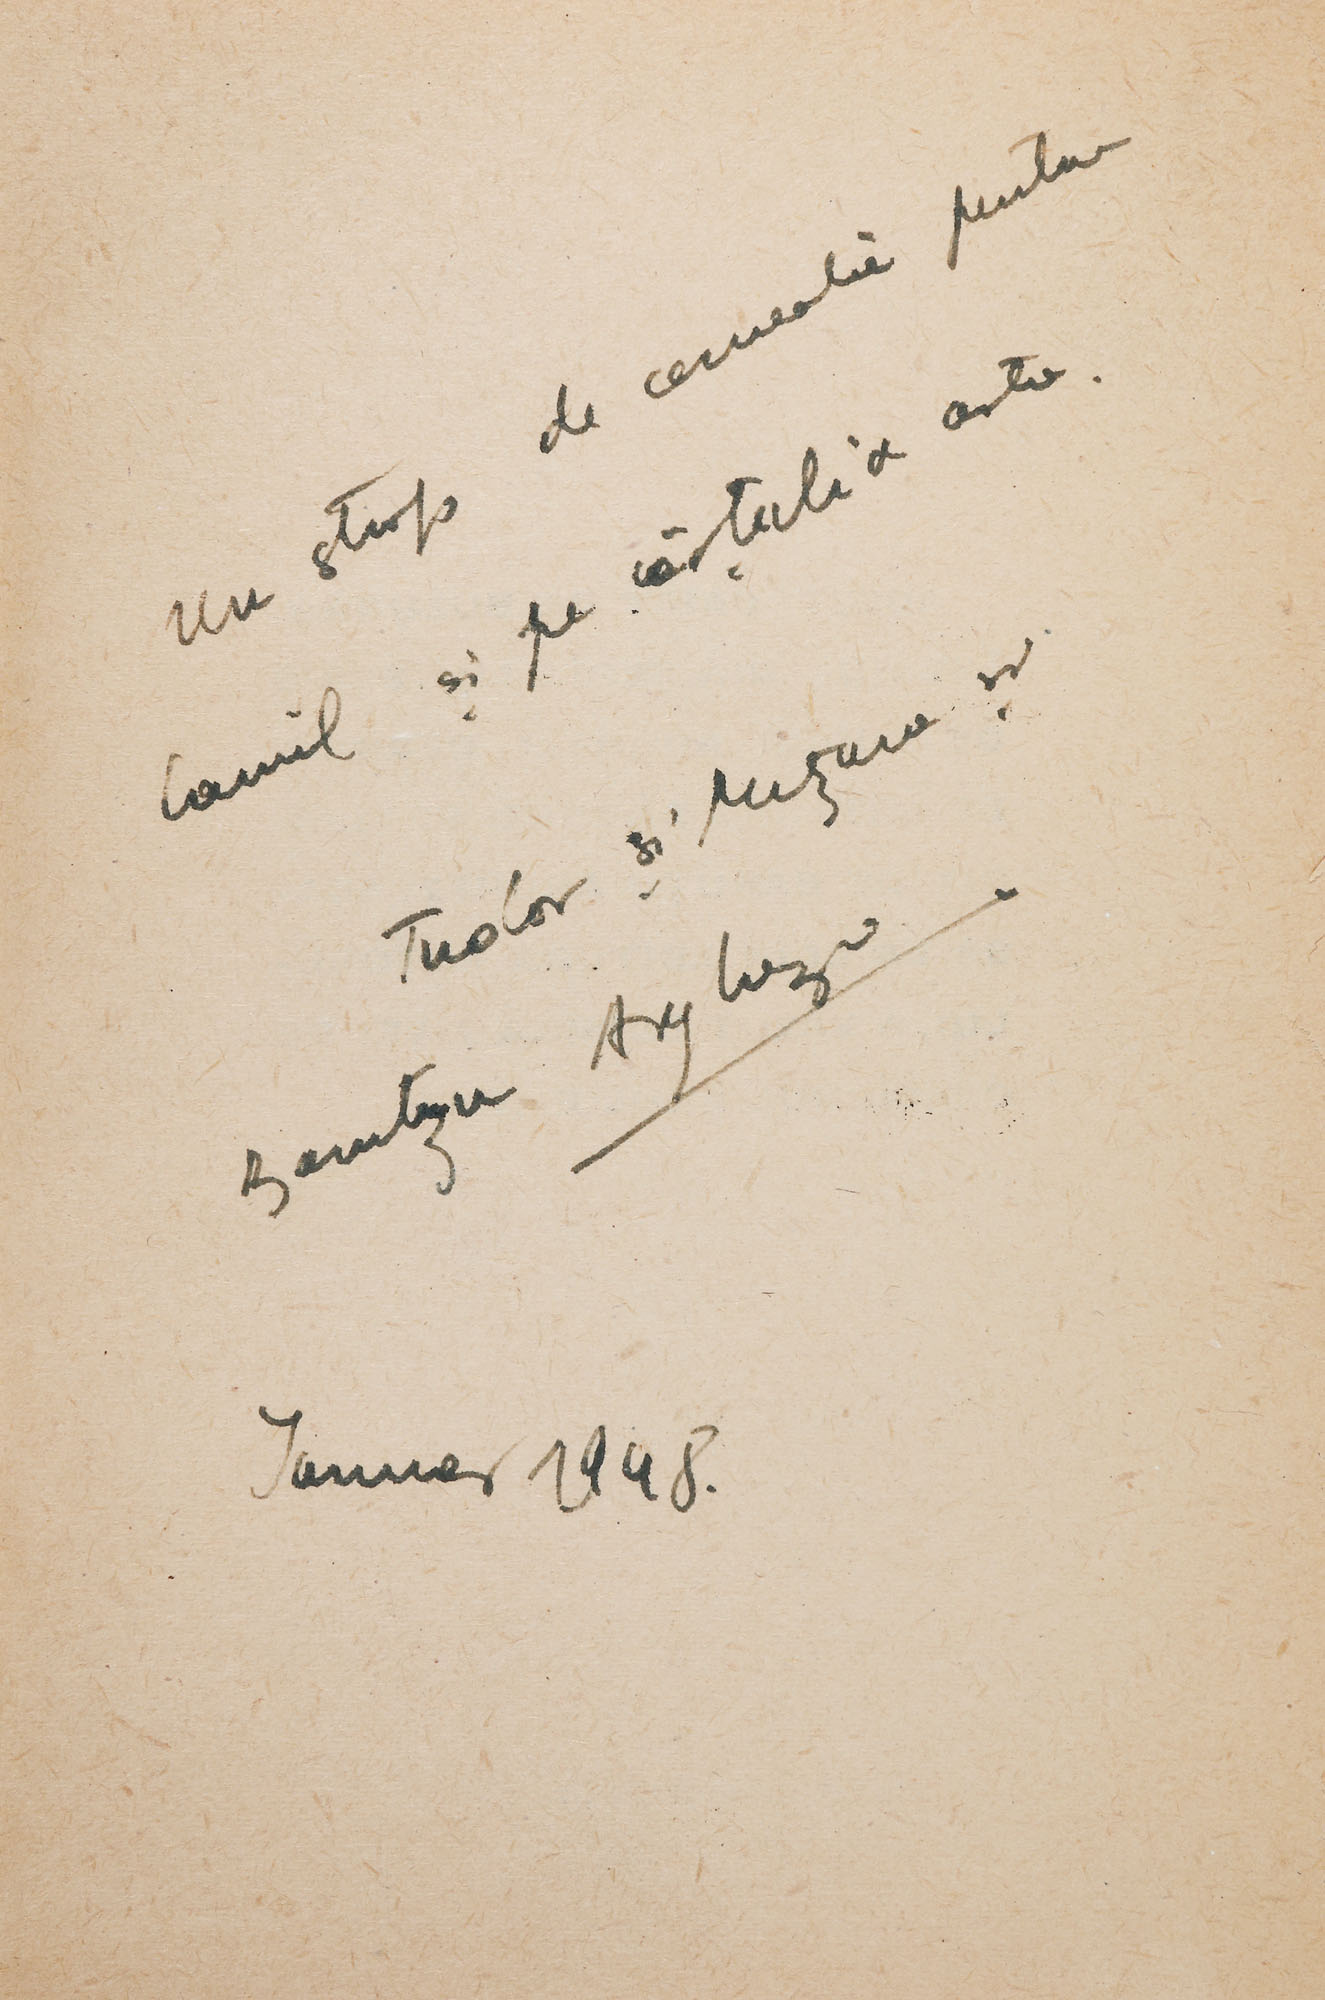 Un strop de cerneală pentru
Camil și pe cărticica asta.
Tudor și Mitzura și
Barutzu Arghezi
Januar 1948.